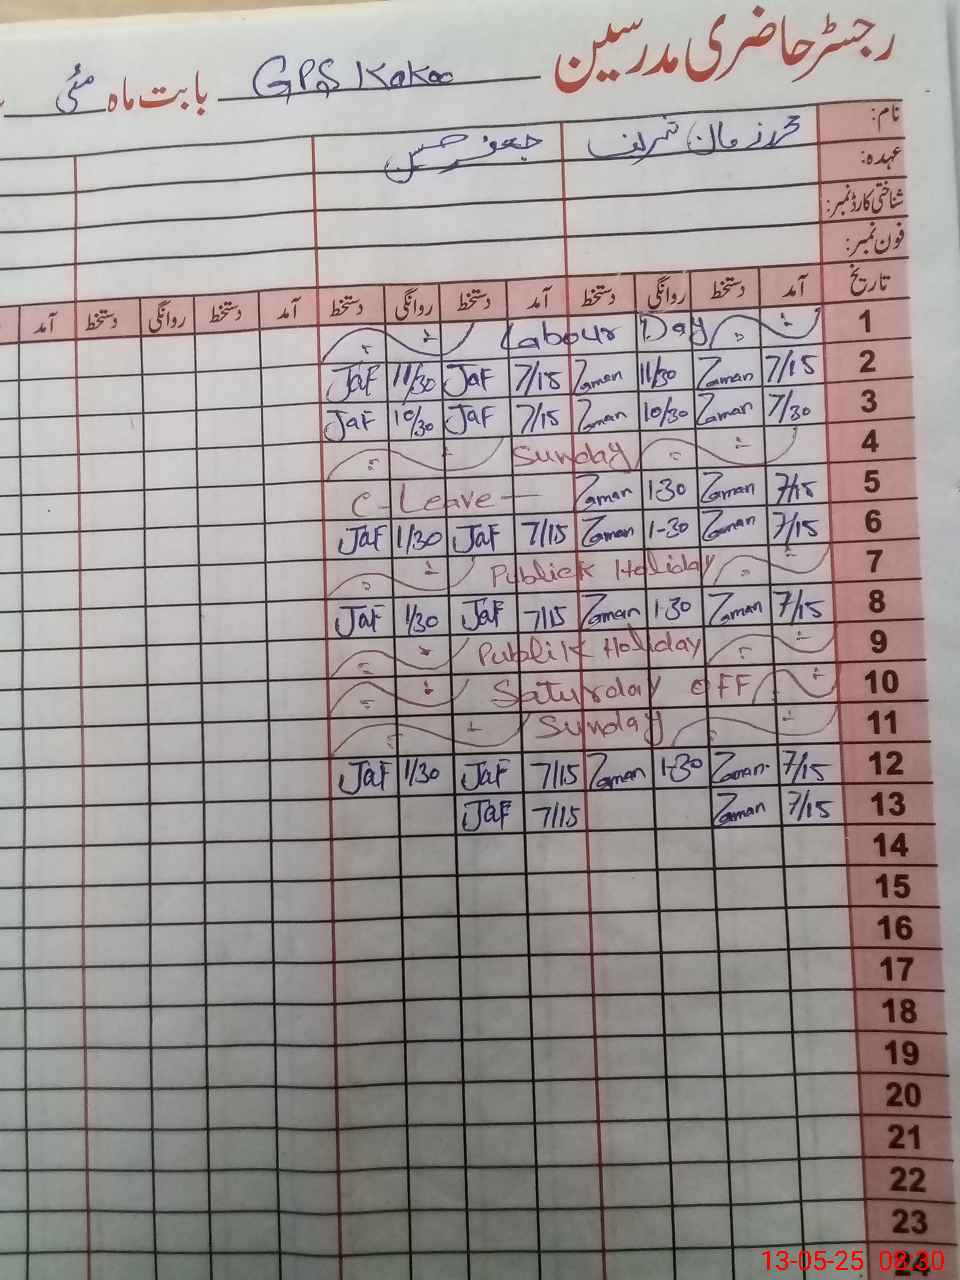 رجسٹر حاضری مدرسین GPS Kakoo بابت ماہ مئی
نام: محمد زمان شریف جعفر حسین
عہدہ:
شناختی کارڈ نمبر:
فون نمبر:
تاریخ آمد دستخط روانگی دستخط آمد دستخط روانگی دستخط آمد دستخط روانگی دستخط آمد
1 Labour Day
2 7/15 Zaman 11/30 Zaman 7/15 Jaf 11/30 Jaf
3 7/30 Zaman 10/30 Zaman 7/15 Jaf 10/30 Jaf
4 Sunday
5 7/15 Zaman 1-30 Zaman C-Leave
6 7/15 Zaman 1-30 Zaman 7/15 Jaf 1/30 Jaf
7 Publick Holiday
8 7/15 Zaman 1-30 Zaman 7/15 Jaf 1/30 Jaf
9 Publik Holiday
10 Saturday OFF
11 Sunday
12 7/15 Zaman 1-30 Zaman 7/15 Jaf 1/30 Jaf
13 7/15 Zaman 7/15 Jaf
14
15
16
17
18
19
20
21
22
23
24
13-05-25 08:30